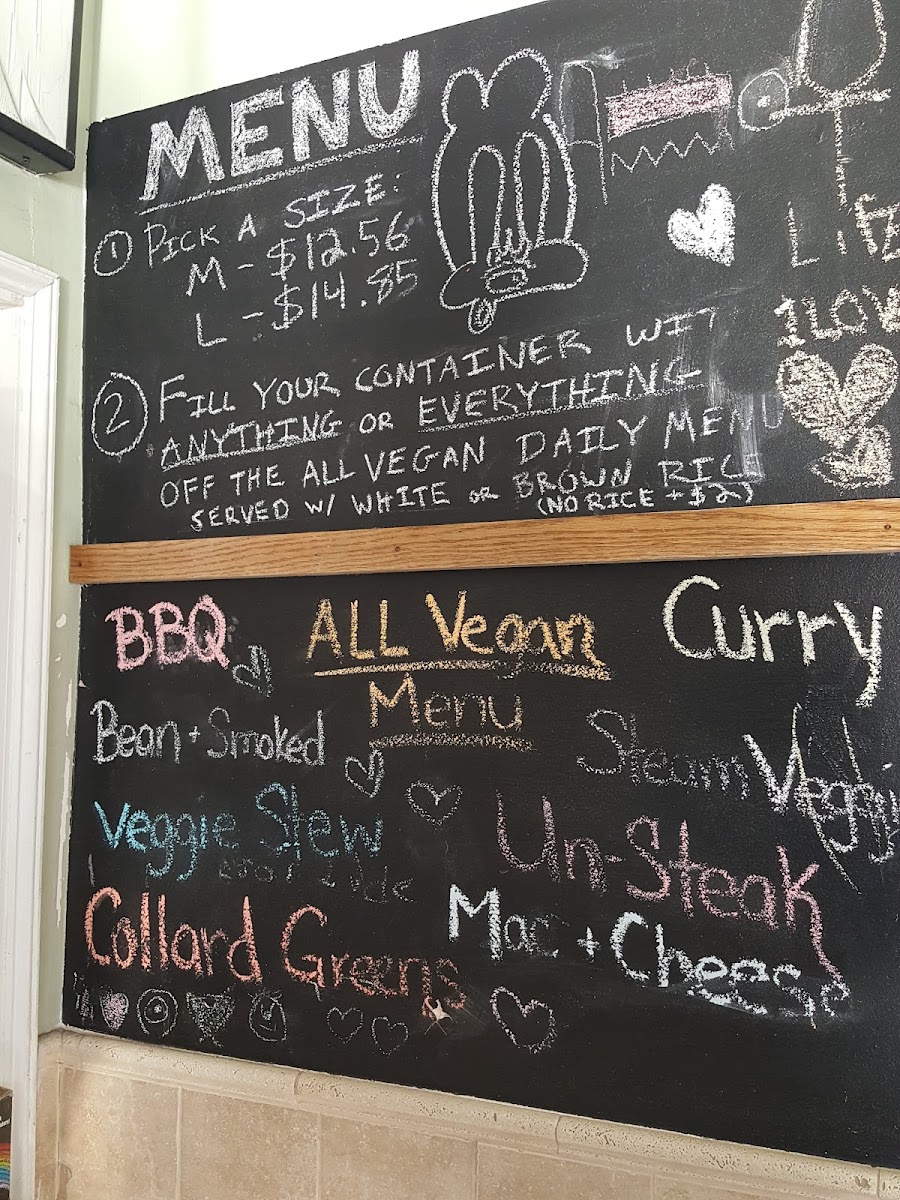 MENU
① PICK A SIZE:
M - $12.56
L - $14.85
② FILL YOUR CONTAINER WIT
ANYTHING OR EVERYTHING
OFF THE ALL VEGAN DAILY MENU
SERVED W/ WHITE OR BROWN RICE
(NO RICE + $2)
LiFE
I LOV
BBQ
ALL Vegan
Menu
Curry
Bean + Smoked
Steam Veggi
Veggie Stew
Un-Steak
Collard Greens
Mac + Cheese